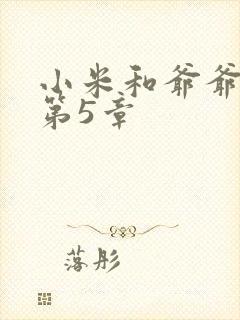 小米和爷爷
第5章
落彤